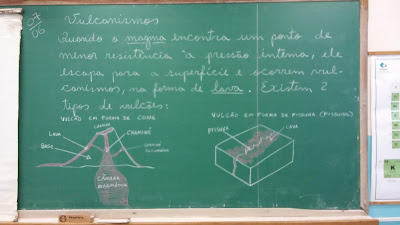 07
06
Vulcanismos
Quando o magma encontra um ponto de
menor resistência "a pressão interna, ele
escapa para a superfície e ocorrem vul-
canismos, na forma de lava. Existem 2
tipos de vulcões:
VULCÃO EM FORMA DE CONE
VULCÃO EM FORMA DE FISSURA (FISSURAS)
CRATERA
LAVA
CHAMINÉ
BASE
CHAMINÉ
SECUNDÁRIA
CÂMARA
MAGMÁTICA
FISSURA
LAVA
K